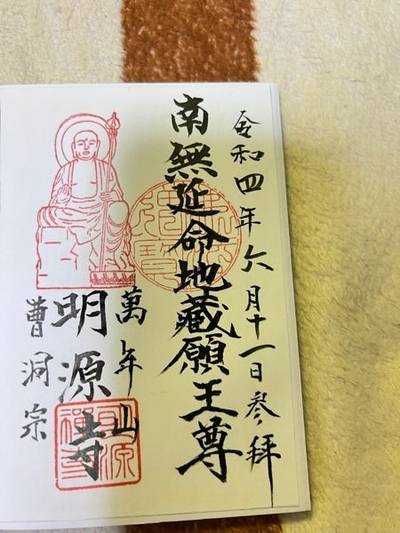 令和四年六月十一日参拝
南無延命地蔵願王尊
萬年山
明源寺
曹洞宗